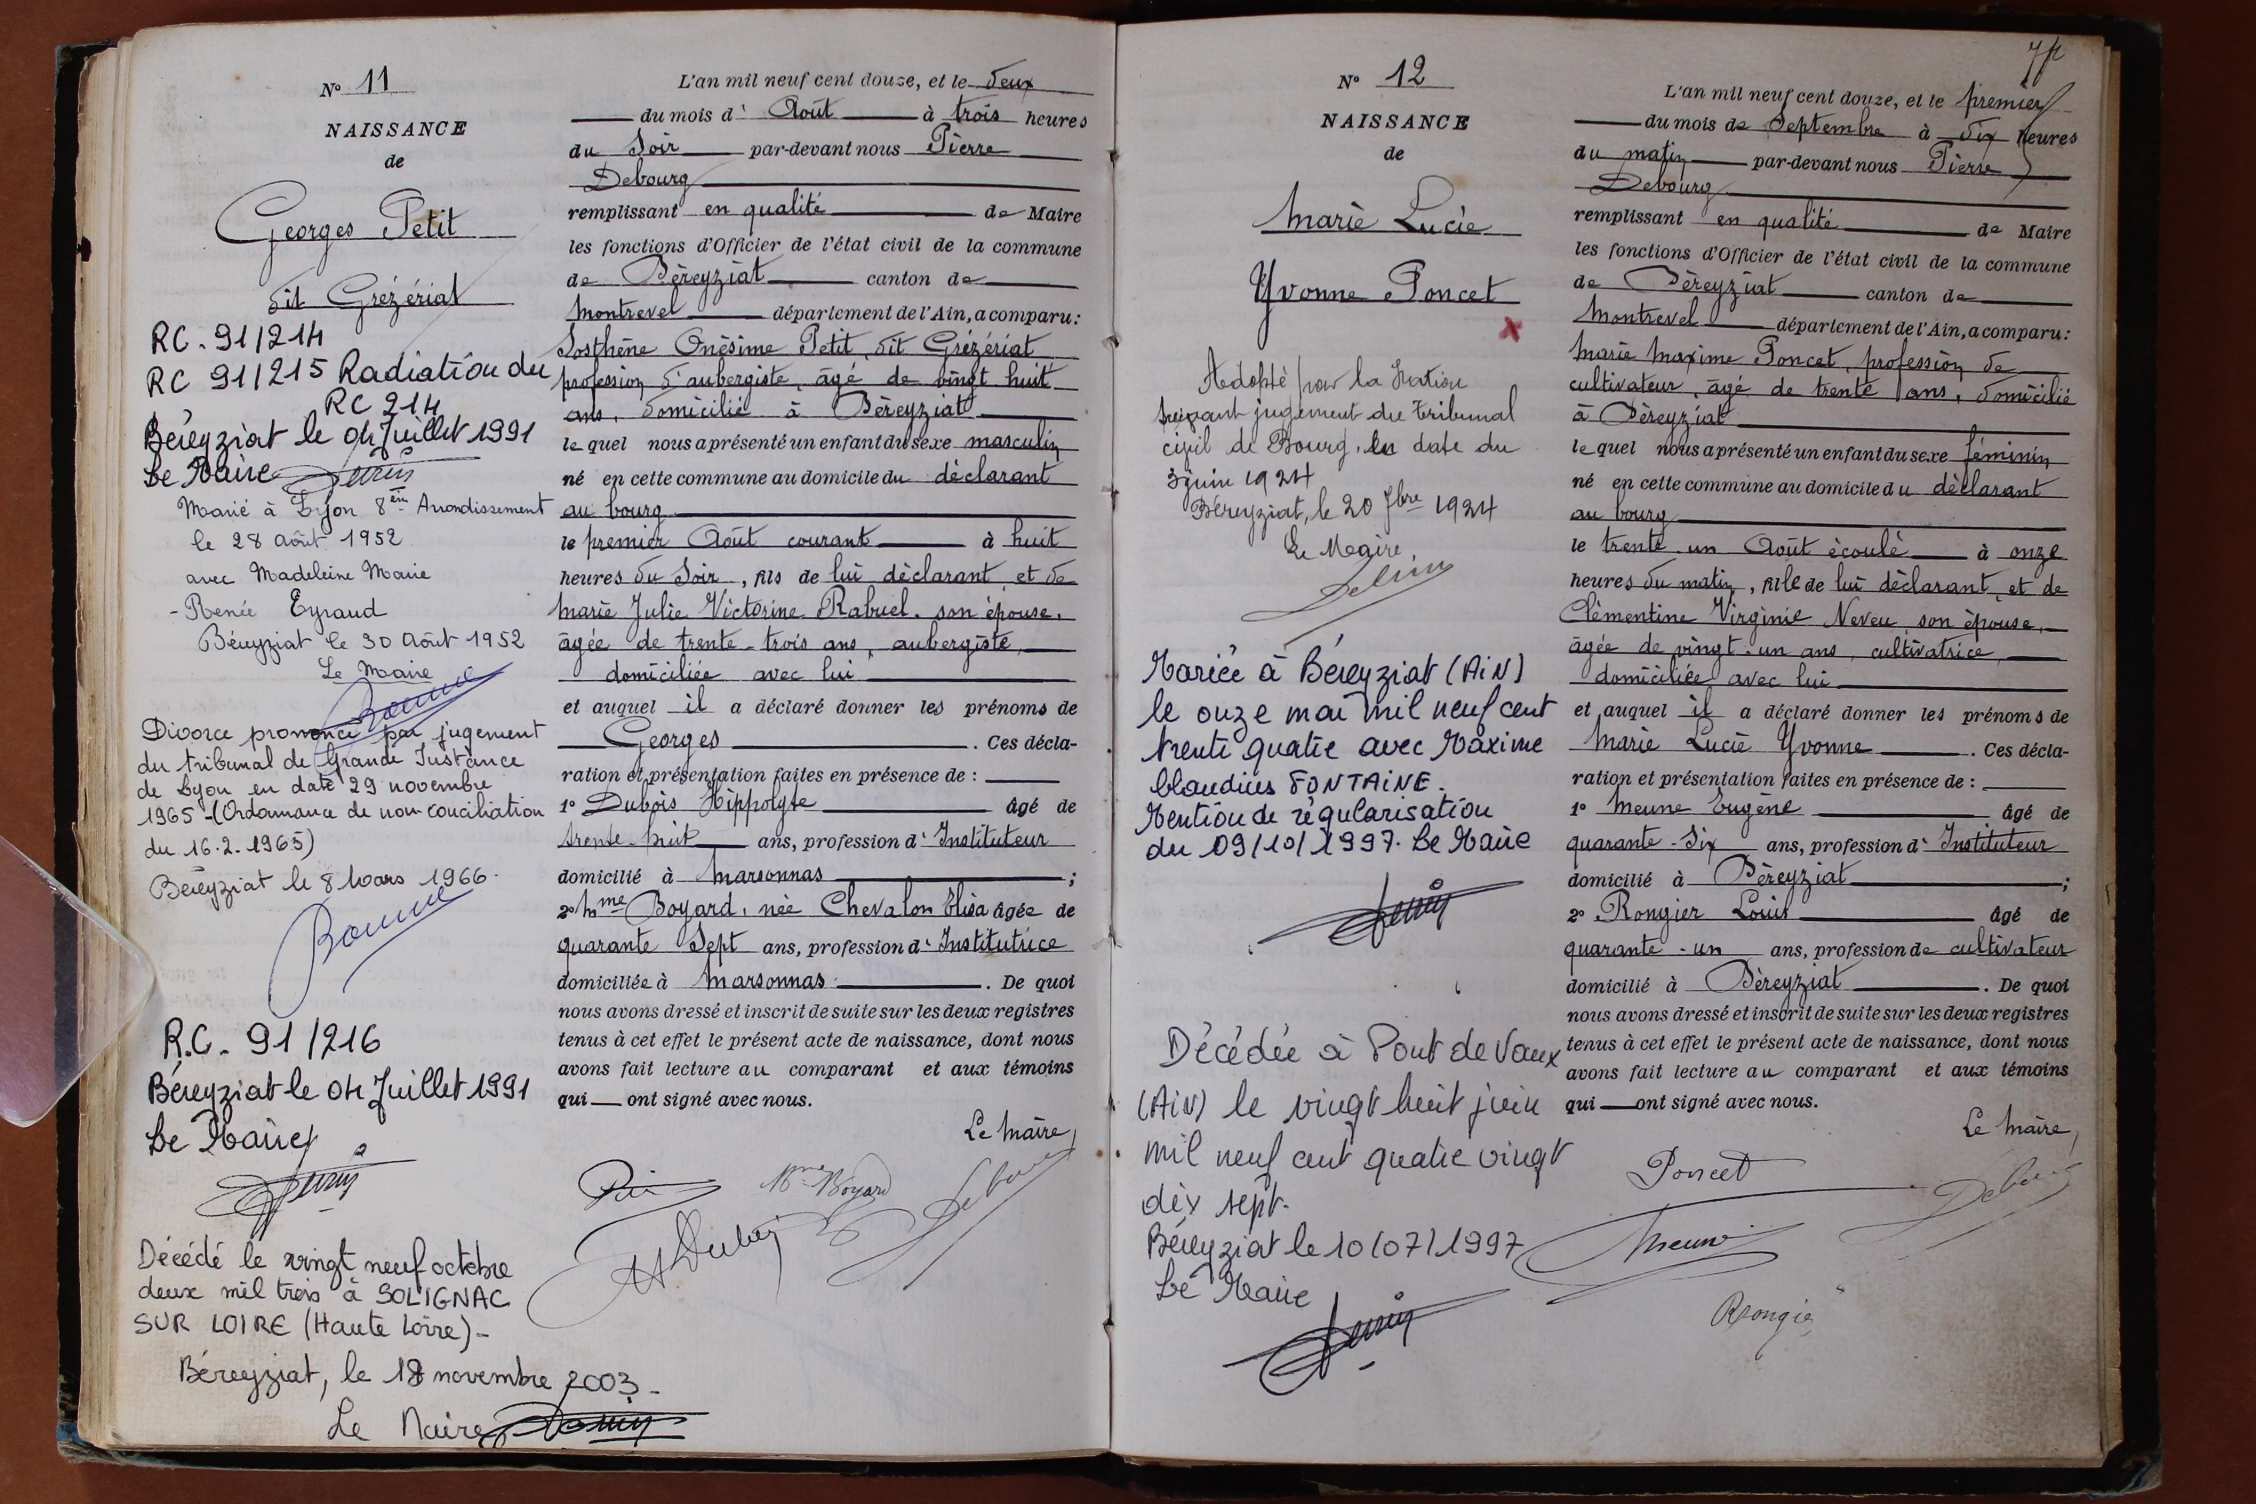 N° 11
NAISSANCE
de
Georges Petit
dit Grézériat
RC. 91/214
RC 91/215 Radiation du
RC 214
Béreyziat le 04 Juillet 1991
Le Maire
Marié à Lyon 8ème Arrondissement
le 28 août 1952
avec Madeleine Marie
- Renée Eyraud
Béreyziat le 30 Août 1952
Le Maire
Divorce prononcé par jugement
du tribunal de Grande Instance
de Lyon en date 29 novembre
1965 - (Ordonnance de non conciliation
du 16.2.1965)
Béreyziat le 8 Mars 1966.
R.C. 91/216
Béreyziat le 04 Juillet 1991
Le Maire
Décédé le vingt neuf octobre
deux mil trois à SOLIGNAC
SUR LOIRE (Haute Loire)-
Béreyziat, le 18 novembre 2003.
Le Maire
L'an mil neuf cent douze, et le deux
du mois d' Août à trois heures
du Soir par-devant nous Pierre
Debourg
remplissant en qualité de Maire
les fonctions d'Officier de l'état civil de la commune
de Béreyziat canton de
Montrevel département de l'Ain, a comparu:
Sosthène Onésime Petit, dit Grézériat
profession d'aubergiste, âgé de vingt huit
ans, domicilié à Béreyziat
le quel nous a présenté un enfant du sexe masculin
né en cette commune au domicile du déclarant
au bourg
le premier Août courant à huit
heures du Soir, fils de lui déclarant et de
Marie Julie Victorine Rabuel, son épouse,
âgée de trente-trois ans, aubergiste,
domiciliée avec lui
et auquel il a déclaré donner les prénoms de
Georges . Ces décla-
ration et présentation faites en présence de :
1° Dubois Hippolyte âgé de
trente-huit ans, profession d' Instituteur
domicilié à Marsonnas ;
2° Mme Boyard, née Chevalon Elisa âgée de
quarante Sept ans, profession d' Institutrice
domiciliée à Marsonnas . De quoi
nous avons dressé et inscrit de suite sur les deux registres
tenus à cet effet le présent acte de naissance, dont nous
avons fait lecture au comparant et aux témoins
qui ont signé avec nous.
Le Maire,
Mme Boyard
H Dubois
Debourg
N° 12
NAISSANCE
de
Marie Lucie
Yvonne Poncet
X
Adopté par la Nation
suivant jugement du tribunal
civil de Bourg, en date du
3 juin 1924
Béreyziat, le 20 7bre 1924
Le Maire,
Mariée à Béreyziat (AIN)
le onze mai mil neuf cent
trente quatre avec Maxime
Claudius FONTAINE.
Mention de régularisation
du 09/10/1997. Le Maire
Décédée à Pont de Vaux
(AIN) le vingt huit juin
mil neuf cent quatre vingt
dix sept.
Béreyziat le 10/07/1997
Le Maire
L'an mil neuf cent douze, et le premier
du mois de Septembre à dix heures
du matin par-devant nous Pierre
Debourg
remplissant en qualité de Maire
les fonctions d'Officier de l'état civil de la commune
de Béreyziat canton de
Montrevel département de l'Ain, a comparu:
Marie Maxime Poncet, profession de
cultivateur, âgé de trente ans, domicilié
à Béreyziat
le quel nous a présenté un enfant du sexe féminin
né en cette commune au domicile du déclarant
au bourg
le trente-un Août écoulé à onze
heures du matin, fille de lui déclarant, et de
Clémentine Virginie Neveu son épouse,
âgée de vingt-un ans, cultivatrice,
domiciliée avec lui
et auquel il a déclaré donner les prénoms de
Marie Lucie Yvonne . Ces décla-
ration et présentation faites en présence de :
1° Meune Eugène âgé de
quarante-six ans, profession d' Instituteur
domicilié à Béreyziat ;
2° Rongier Louis âgé de
quarante-un ans, profession de cultivateur
domicilié à Béreyziat . De quoi
nous avons dressé et inscrit de suite sur les deux registres
tenus à cet effet le présent acte de naissance, dont nous
avons fait lecture au comparant et aux témoins
qui ont signé avec nous.
Le Maire,
Poncet
Debourg
Meune
Rongier